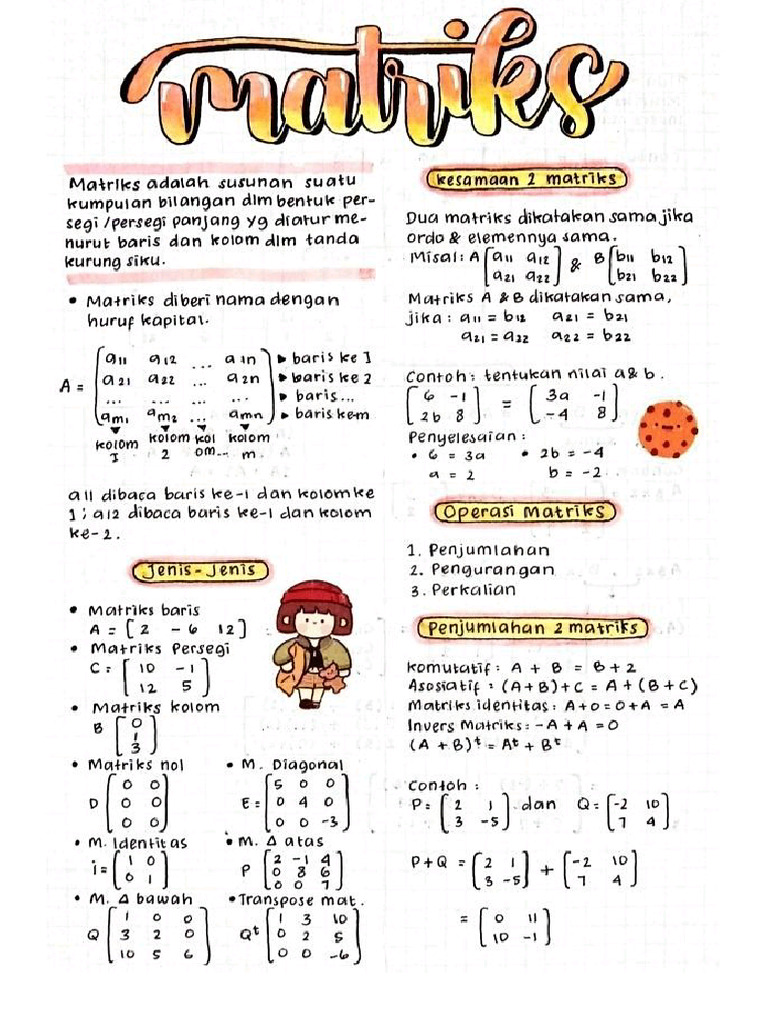 matriks
Matriks adalah susunan suatu
kumpulan bilangan dlm bentuk per-
segi/persegi panjang yg diatur me-
nurut baris dan kolom dlm tanda
kurung siku.
• Matriks diberi nama dengan
huruf kapital.
A = [a11 a12 ... a1n] ▸ baris ke 1
[a21 a22 ... a2n] ▸ baris ke 2
[... ... ... ...] ▸ baris...
[am1 am2 ... amn] ▸ baris ke m
kolom kolom kol kolom
1 2 om... m.
a11 dibaca baris ke-1 dan kolom ke
1 ; a12 dibaca baris ke-1 dan kolom
ke-2.
Jenis-Jenis
• Matriks baris
A = [2 -6 12]
• Matriks Persegi
C: [10 -1]
[12 5]
• Matriks kolom
B [0]
[1]
[3]
• Matriks nol
D [0 0]
[0 0]
[0 0]
• M. Diagonal
E = [5 0 0]
[0 4 0]
[0 0 -3]
• M. Identitas
i = [1 0]
[0 1]
• M. Δ atas
P [2 -1 4]
[0 8 6]
[0 0 7]
• M. Δ bawah
Q [1 0 0]
[3 2 0]
[10 5 6]
• Transpose mat.
Qt [1 3 10]
[0 2 5]
[0 0 -6]
kesamaan 2 matriks
Dua matriks dikatakan sama jika
ordo & elemennya sama.
Misal: A [a11 a12] & B [b11 b12]
[a21 a22] [b21 b22]
Matriks A & B dikatakan sama,
jika: a11 = b12 a21 = b21
a21 = a22 a22 = b22
Contoh: tentukan nilai a & b.
[6 -1] = [3a -1]
[2b 8] [-4 8]
Penyelesaian:
• 6 = 3a • 2b = -4
a = 2 b = -2
Operasi Matriks
1. Penjumlahan
2. Pengurangan
3. Perkalian
Penjumlahan 2 matriks
Komutatif: A + B = B + 2
Asosiatif: (A+B)+C = A+(B+C)
Matriks identitas: A+0=0+A = A
Invers Matriks: -A+A=0
(A + B)t = At + Bt
Contoh:
P = [2 1] dan Q = [-2 10]
[3 -5] [7 4]
P+Q = [2 1] + [-2 10]
[3 -5] [7 4]
= [0 11]
[10 -1]